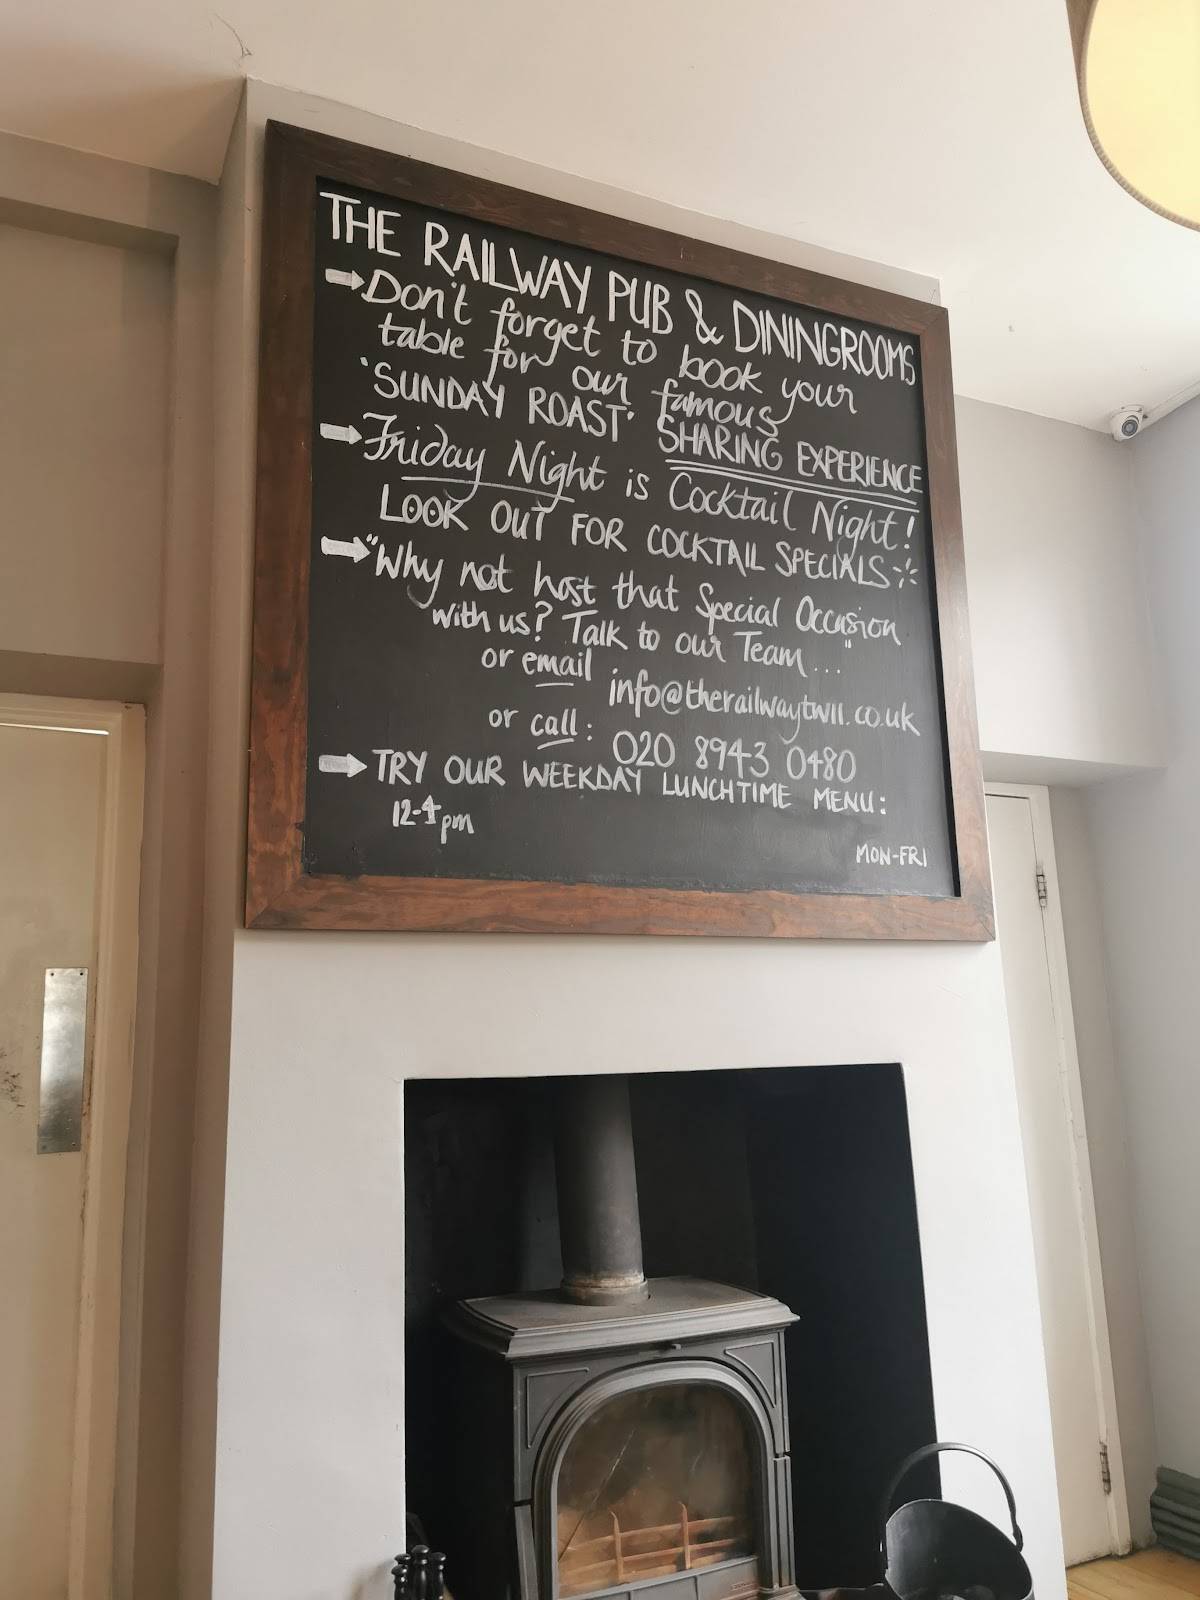 THE RAILWAY PUB & DININGROOMS
Don't forget to book your
table for our famous
'SUNDAY ROAST' SHARING EXPERIENCE
Friday Night is Cocktail Night!
LOOK OUT FOR COCKTAIL SPECIALS
"Why not host that Special Occasion
with us? Talk to our Team..."
or email info@therailwaytw11.co.uk
or call: 020 8943 0480
TRY OUR WEEKDAY LUNCHTIME MENU:
12-4pm
MON-FRI